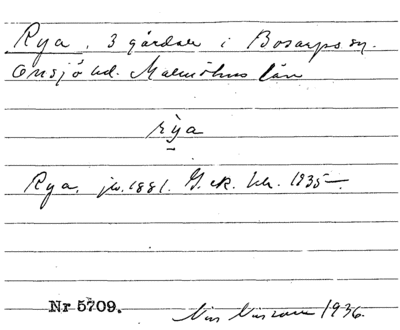 Rya, 3 gårdar i Bosarps sn.
Onsjö hd. Malmöhus län
rya
Rya, jb. 1881. G. ek. kh. 1935
Nr 5709.
1936.